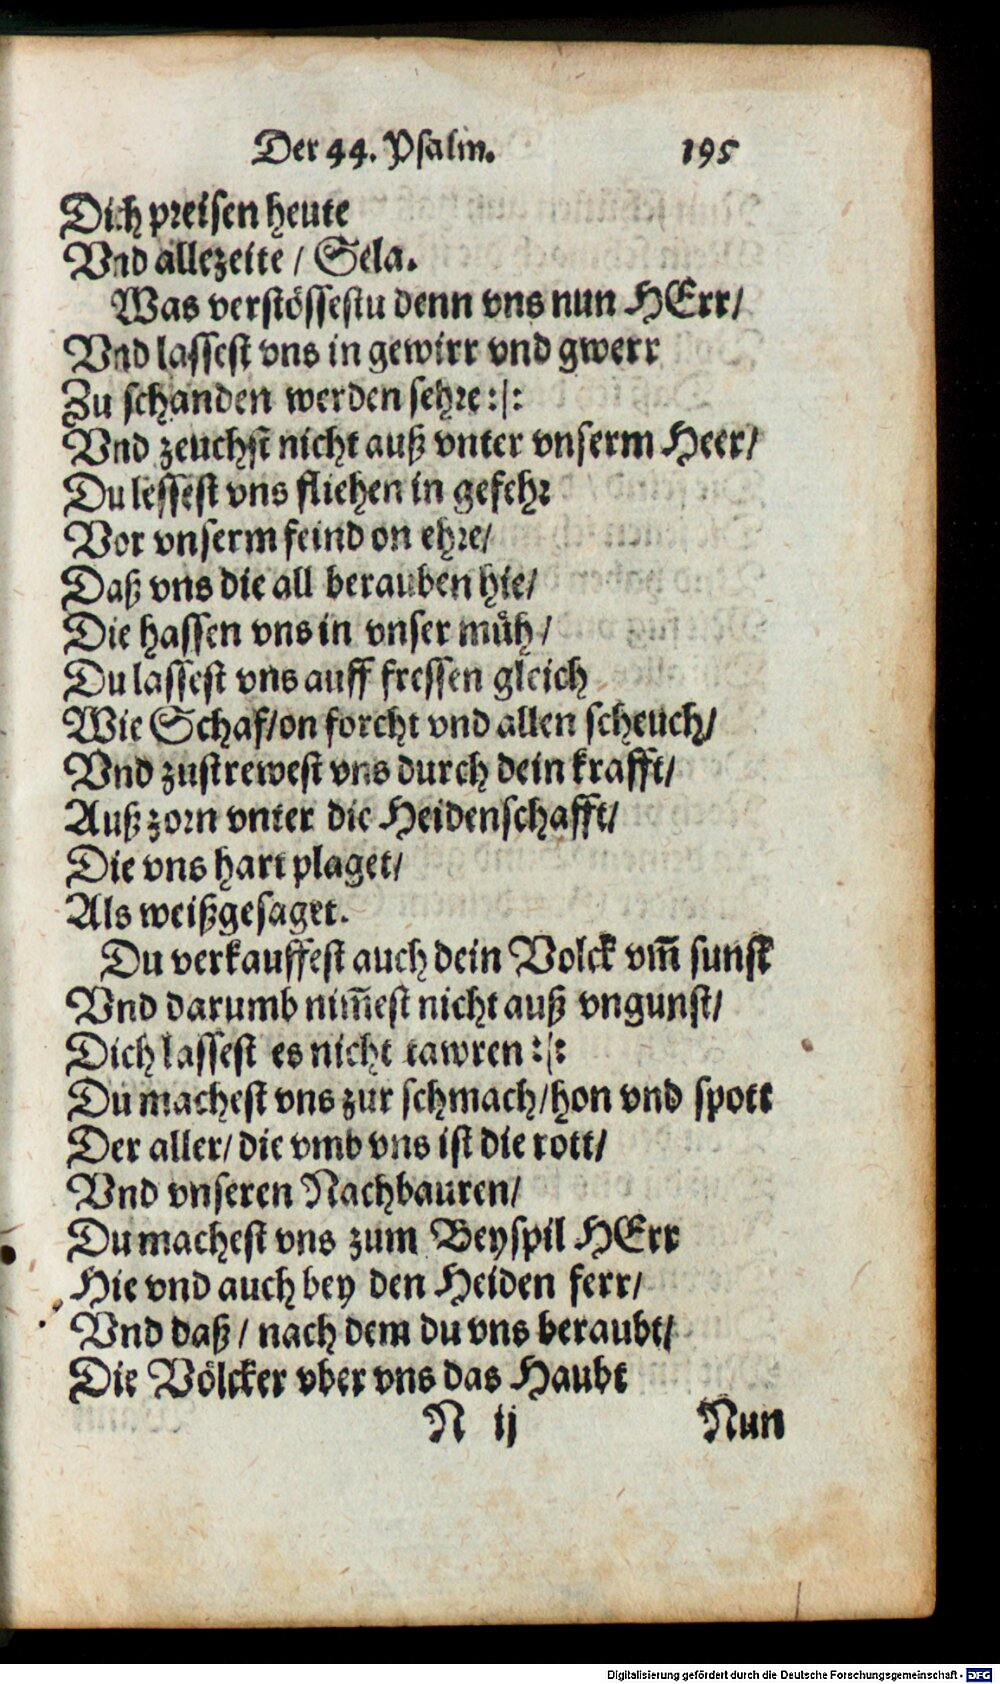 Der 44. Psalm. 195
Dich preisen heute
Vnd allezeite / Sela.
Was verstössestu denn vns nun HErr/
Vnd lassest vns in gewirr vnd gwerr
Zu schanden werden sehre :|:
Vnd zeuchst nicht auß vnter vnserm Heer/
Du lessest vns fliehen in gefehr
Vor vnserm feind on ehre/
Daß vns die all berauben hie/
Die hassen vns in vnser müh/
Du lassest vns auff fressen gleich
Wie Schaf/on forcht vnd allen scheuch/
Vnd zustrewest vns durch dein krafft/
Auß zorn vnter die Heidenschafft/
Die vns hart plaget/
Als weißgesaget.
Du verkauffest auch dein Volck vm̃ sunst
Vnd darumb nim̃est nicht auß vngunst/
Dich lassest es nicht tawren :|:
Du machest vns zur schmach/hon vnd spott
Der aller/ die vmb vns ist die rott/
Vnd vnseren Nachbauren/
Du machest vns zum Beyspil HErr
Hie vnd auch bey den Heiden ferr/
Vnd daß / nach dem du vns beraubt/
Die Völcker vber vns das Haubt
N ij Nun
Digitalisierung gefördert durch die Deutsche Forschungsgemeinschaft - DFG